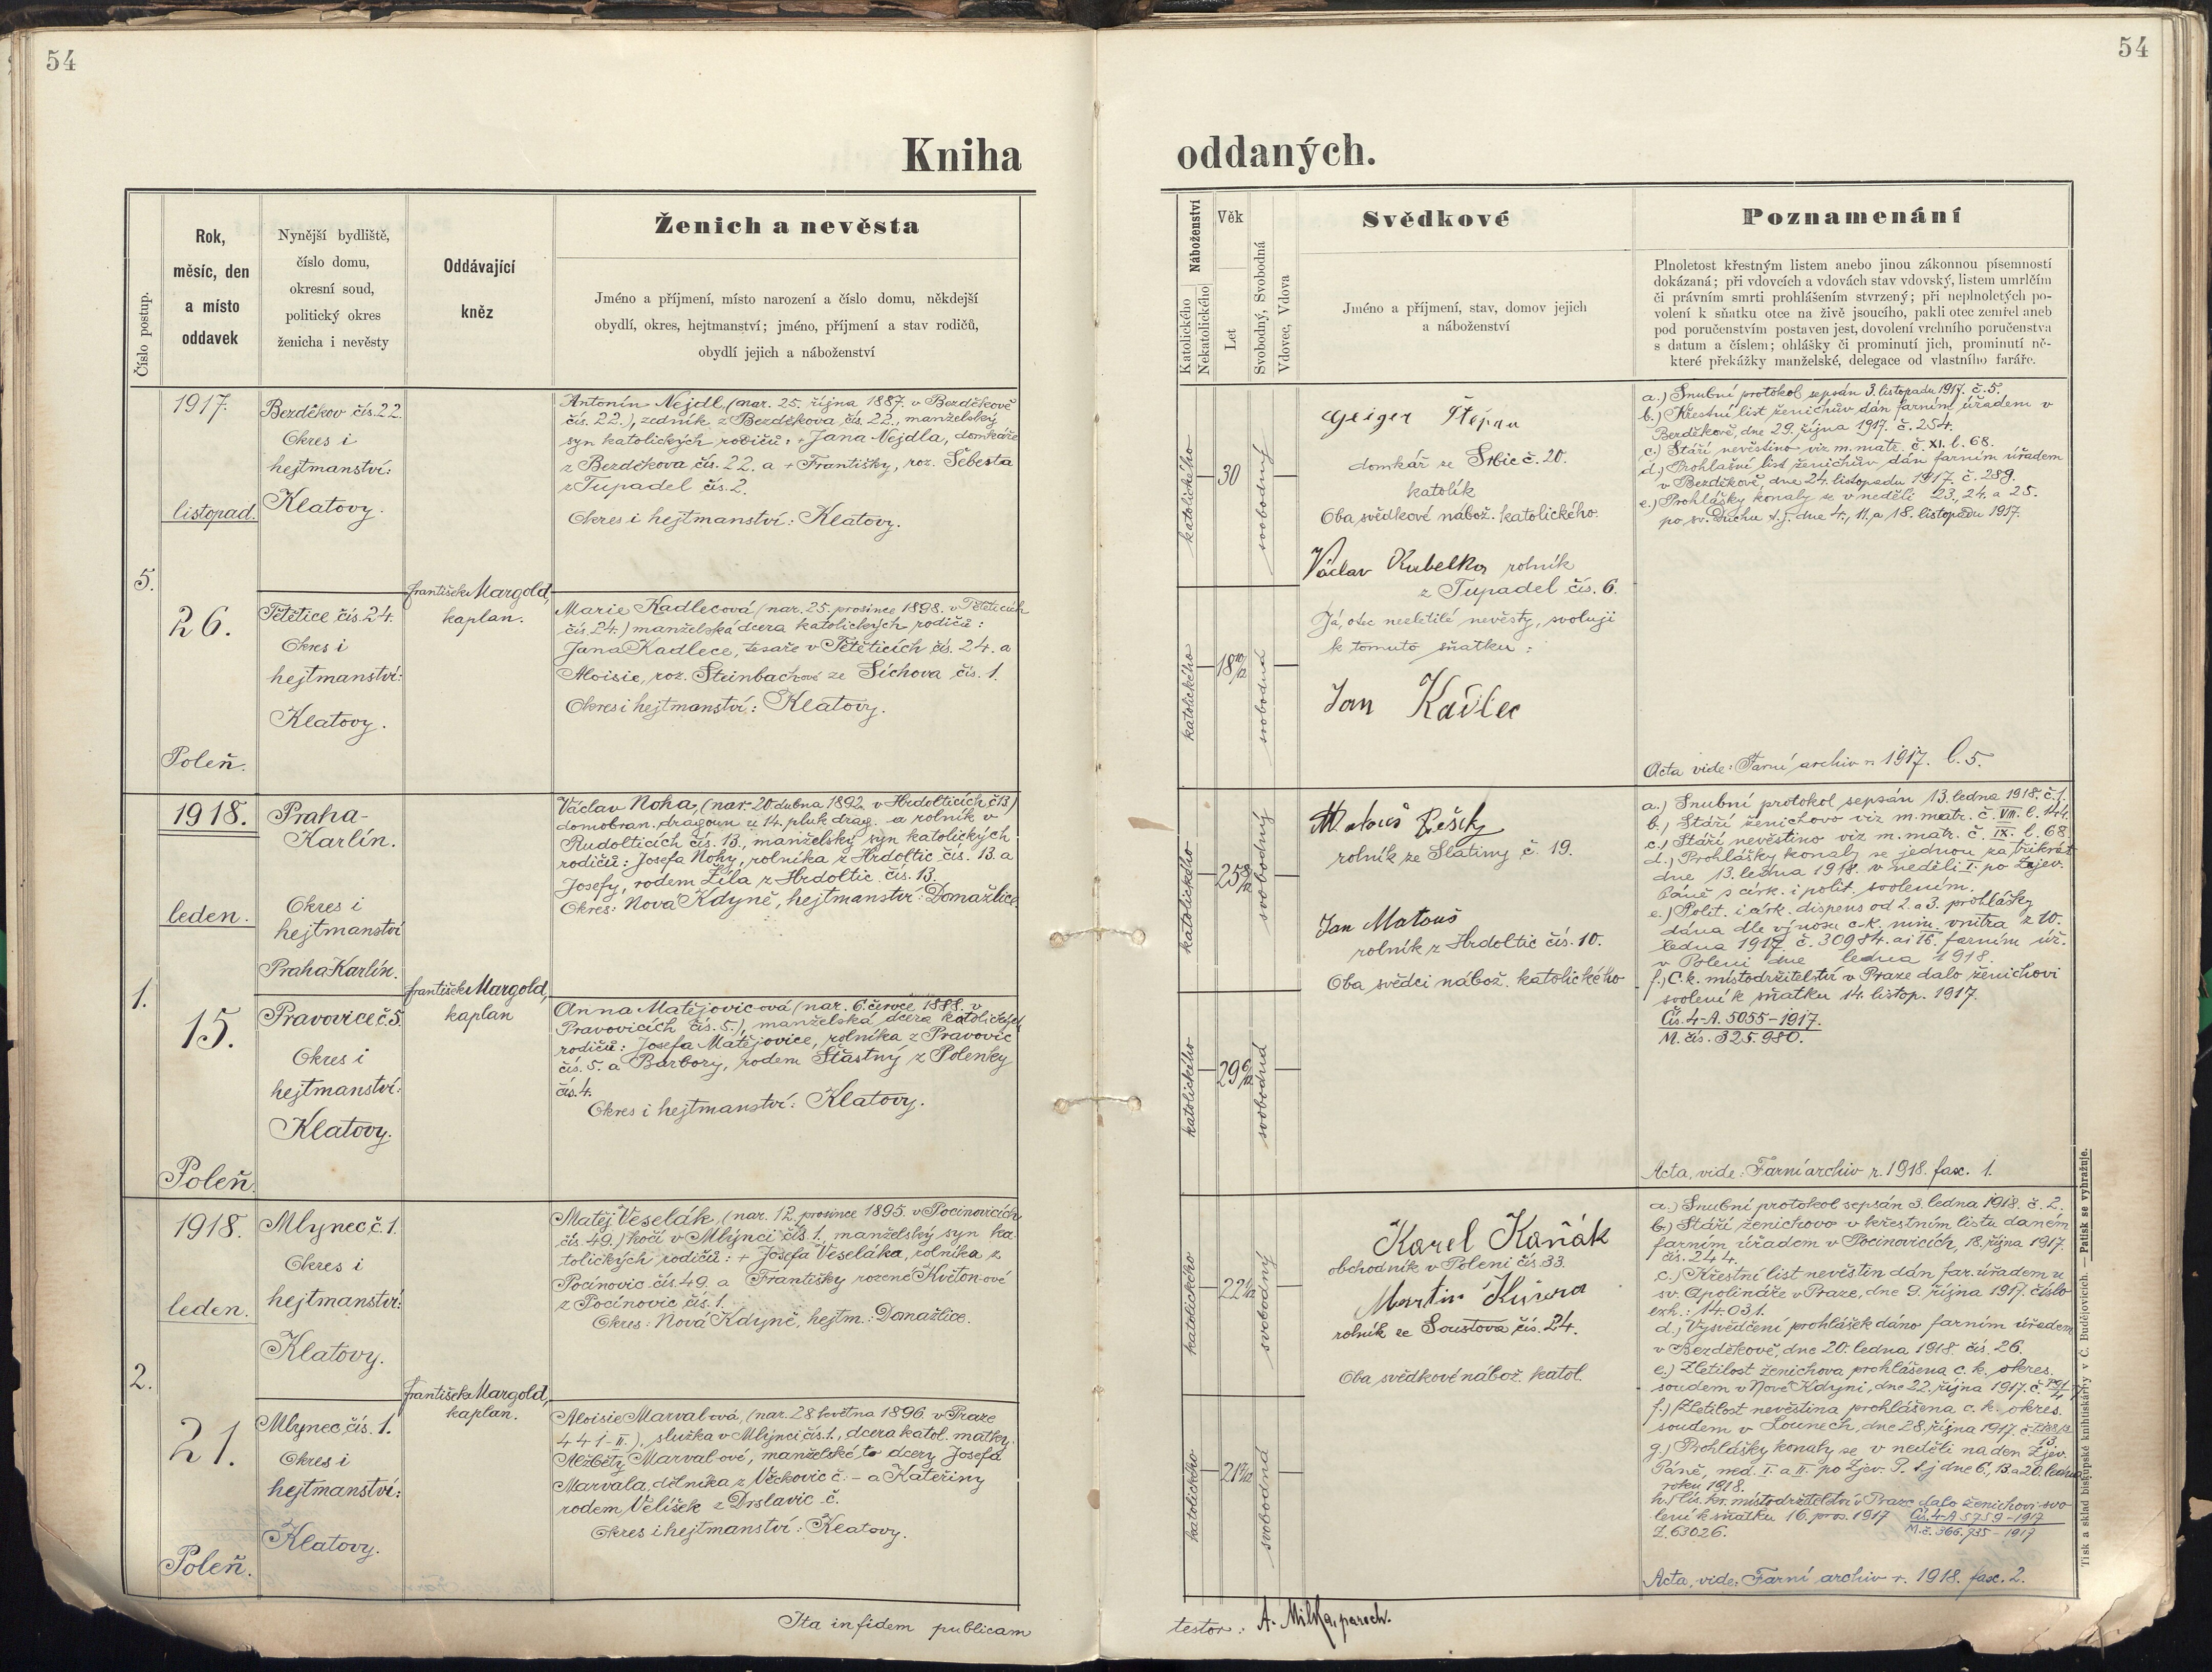 54
54
Kniha
oddaných.
Číslo postup.
Rok,
měsíc, den
a místo
oddavek
Nynější bydliště,
číslo domu,
okresní soud,
politický okres
ženicha i nevěsty
Oddávající
kněz
Ženich a nevěsta
Jméno a příjmení, místo narození a číslo domu, někdejší
obydlí, okres, hejtmanství; jméno, příjmení a stav rodičů,
obydlí jejich a náboženství
Náboženství
Katolického
Nekatolického
Věk
Let
Svobodný, Svobodná
Vdovec, Vdova
Svědkové
Jméno a příjmení, stav, domov jejich
a náboženství
Poznamenání
Plnoletost křestným listem anebo jinou zákonnou písemností
dokázaná; při vdovcích a vdovách stav vdovský, listem umrlčím
či právním smrti prohlášením stvrzený; při neplnoletých po-
volení k sňatku otce na živě jsoucího, pakli otec zemřel aneb
pod poručenstvím postaven jest, dovolení vrchního poručenstva
s datum a číslem; ohlášky či prominutí jich, prominutí ně-
které překážky manželské, delegace od vlastního faráře.
5.
1917.
listopad.
26.
Poleň.
Bezděkov čís. 22.
Okres i
hejtmanství:
Klatovy.
Tětětice čís. 24.
Okres i
hejtmanství:
Klatovy.
František Margold,
kaplan.
Antonín Nejdl, (nar. 25. října 1887. v Bezděkově
čís. 22.), zedník z Bezděkova čís. 22., manželský
syn katolických rodičů: + Jana Nejdla, domkáře
z Bezděkova čís. 22. a + Františky, roz. Šebesta
z Tupadel čís. 2.
Okres i hejtmanství: Klatovy.
Marie Kadlecová (nar. 25. prosince 1898. v Tětěticích
čís. 24.) manželská dcera katolických rodičů:
Jana Kadlece, tesaře v Tětěticích čís. 24. a
Aloisie, roz. Steinbachové ze Síchova čís. 1.
Okres i hejtmanství: Klatovy.
katolického
30
svobodný
katolického
18 10/12
svobodná
Geiger Štěpán
domkář ze Srbic č. 20.
katolík
Oba svědkové nábož. katolického.
Václav Kubelka, rolník
z Tupadel čís. 6.
Já, otec nezletilé nevěsty, svoluji
k tomuto sňatku:
Jan Kadlec
a.) Snubní protokol sepsán 3. listopadu 1917. č. 5.
b.) Křestní list ženichův dán farním úřadem v
Bezděkově, dne 29. října 1917. č. 254.
c.) Stáří nevěstino viz m. matr. č. XI. l. 68.
d.) Prohlašní list ženichův dán farním úřadem
v Bezděkově, dne 24. listopadu 1917. č. 289.
e.) Prohlášky konaly se v neděli 23., 24. a 25.
po sv. Duchu t. j. dne 4., 11. a 18. listopadu 1917.
Acta vide: Farní archiv r. 1917. l. 5.
1.
1918.
leden.
15.
Poleň.
Praha-
Karlín.
Okres i
hejtmanství
Praha Karlín.
Pravovice č. 5.
Okres i
hejtmanství:
Klatovy.
František Margold,
kaplan
Václav Noha, (nar. 20 dubna 1892. v Hrdolticích č 13.)
domobran. dragoun u 14. pluk drag. a rolník v
Rudolticích čís. 13., manželský syn katolických
rodičů: Josefa Nohy, rolníka z Hrdoltic čís. 13. a
Josefy, rodem Žila z Hrdoltic čís. 13.
Okres: Nová Kdyně, hejtmanství: Domažlice.
Anna Matějovic-ová (nar. 6. července 1888. v
Pravovicích čís. 5.), manželská dcera katolických
rodičů: Josefa Matějovice, rolníka z Pravovic
čís. 5. a Barbory, rodem Šťastný z Polenky
čís. 4.
Okres i hejtmanství: Klatovy.
katolického
25 8/12
svobodný
katolického
29 6/12
svobodná
Matouš Pešík
rolník ze Slatiny č. 19.
Jan Matouš
rolník z Hrdoltic čís. 10.
Oba svědci nábož. katolického
a.) Snubní protokol sepsán 13. ledna 1918. č. 1.
b.) Stáří ženichovo viz m. matr. č. VIII. l. 144.
c.) Stáří nevěstino viz m. matr. č. IX. l. 68.
d.) Prohlášky konaly se jednou za třikrát
dne 13. ledna 1918. v neděli I. po Zjev.
Páně s círk. i polit. svolením.
e.) Polit. i círk. dispens od 2. a 3. prohlášky
dána dle výnosu c. k. min. vnitra z 10.
ledna 1917. č. 30984. ai 16. farním úř.
v Poleni dne ledna 1918.
f.) C. k. místodržitelství v Praze dalo ženichovi
svolení k sňatku 14. listop. 1917.
Čís. 4-A. 5055-1917.
M. čís. 325.980.
Acta, vide: Farní archiv r. 1918. fasc. 1.
2.
1918.
leden.
21.
Poleň.
Mlynec č. 1.
Okres i
hejtmanství:
Klatovy.
Mlynec, čís. 1.
Okres i
hejtmanství:
Klatovy.
František Margold,
kaplan.
Matěj Veselák, (nar. 12. prosince 1895. v Pocinovicích
čís. 49.) kočí v Mlýnci čís. 1., manželský syn ka-
tolických rodičů: + Josefa Veseláka, rolníka z
Pocinovic čís. 49. a Františky rozené Květon-ové
z Pocinovic čís. 1.
Okres: Nová Kdyně, hejtm.: Domažlice.
Aloisie Marval-ová, (nar. 28. května 1896. v Praze
441-II.), služka v Mlýnci čís. 1., dcera katol. matky
Alžběty Marval-ové, manželské to dcery Josefa
Marvala, dělníka z Věckovic č. - a Kateřiny
rodem Velíšek z Drslavic č.
Okres i hejtmanství: Klatovy.
katolického
22 1/12
svobodný
katolického
svobodná
Karel Kaňák
obchodník v Poleni čís. 33.
Martin
rolník ze Soustova čís. 24.
Oba svědkové nábož. katol.
a.) Snubní protokol sepsán 3. ledna 1918. č. 2.
b.) Stáří ženichovo v křestním listu daném
farním úřadem v Pocinovicích, 18. října 1917.
čís. 244.
c.) Křestní list nevěstin dán far. úřadem u
sv. Apolináře v Praze, dne 9. října 1917. číslo
exh.: 14.031.
d.) Vysvědčení prohlášek dáno farním úřadem
v Bezděkově, dne 20. ledna 1918 čís. 26.
e.) Zletilost ženichova prohlášena c. k. okres.
soudem v Nové Kdyni, dne 22. října 1917. č.
f.) Zletilost nevěstina prohlášena c. k. okres.
soudem v Lounech, dne 28. října 1917. č.
g.) Prohlášky konaly se v neděli na den Zjev.
Páně, ned. I. a II. po Zjev. P. t. j. dne 6., 13. a 20. ledna
roku 1918.
h.) Cís. kr. místodržitelství v Praze dalo ženichovi svo-
lení k sňatku 16. pros. 1917 Čís. 4-A 5759-1917
Z. 63026. M. č. 366.735-1917
Acta, vide: Farní archiv r. 1918. fasc. 2.
Ita in fidem publicam
testor: A. Milka, paroch.
Tisk a sklad biskupské knihtiskárny v Č. Budějovicích. — Patisk se vyhražuje.